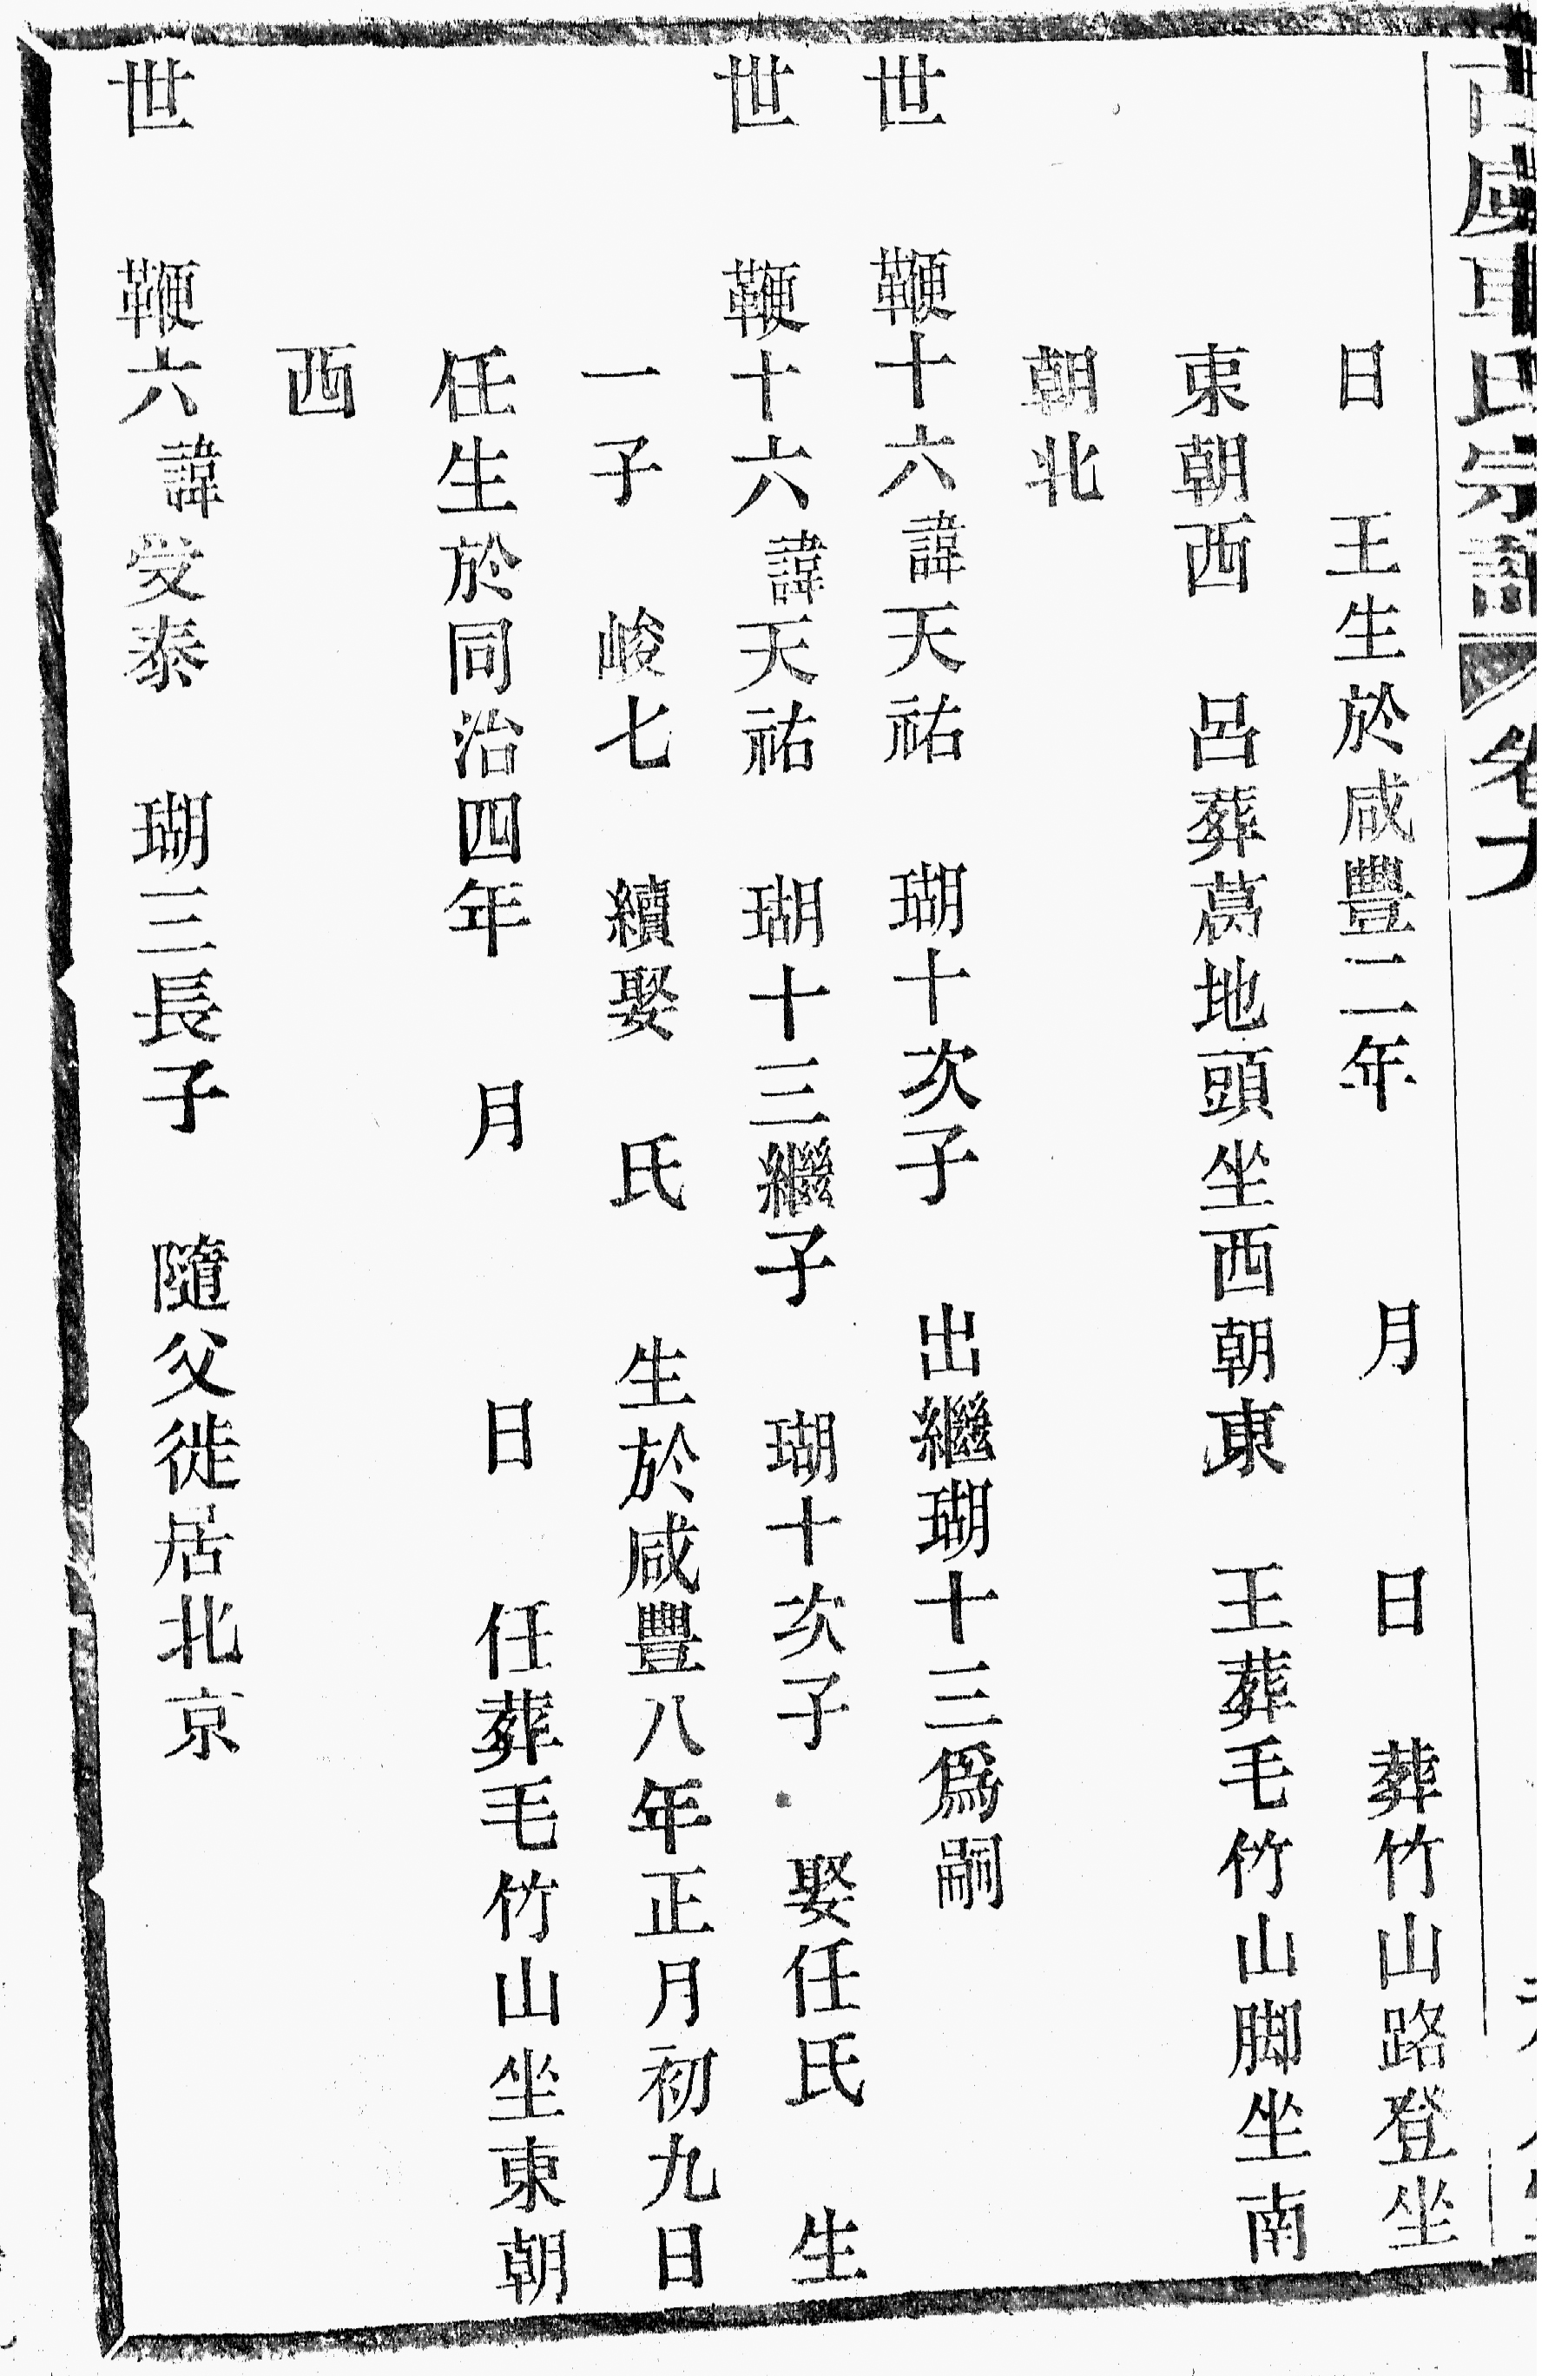 氏宗譜 卷九
日 王生於咸豐二年 月 日 葬竹山路登坐
東朝西 呂葬葛地頭坐西朝東 王葬毛竹山脚坐南
朝北
世 鞭十六諱天祐 瑚十次子 出繼瑚十三爲嗣
世 鞭十六諱天祐 瑚十三繼子 瑚十次子 娶任氏 生
一子 峻七 續娶 氏 生於咸豐八年正月初九日
任生於同治四年 月 日 任葬毛竹山坐東朝
西
世 鞭六諱受泰 瑚三長子 隨父徙居北京